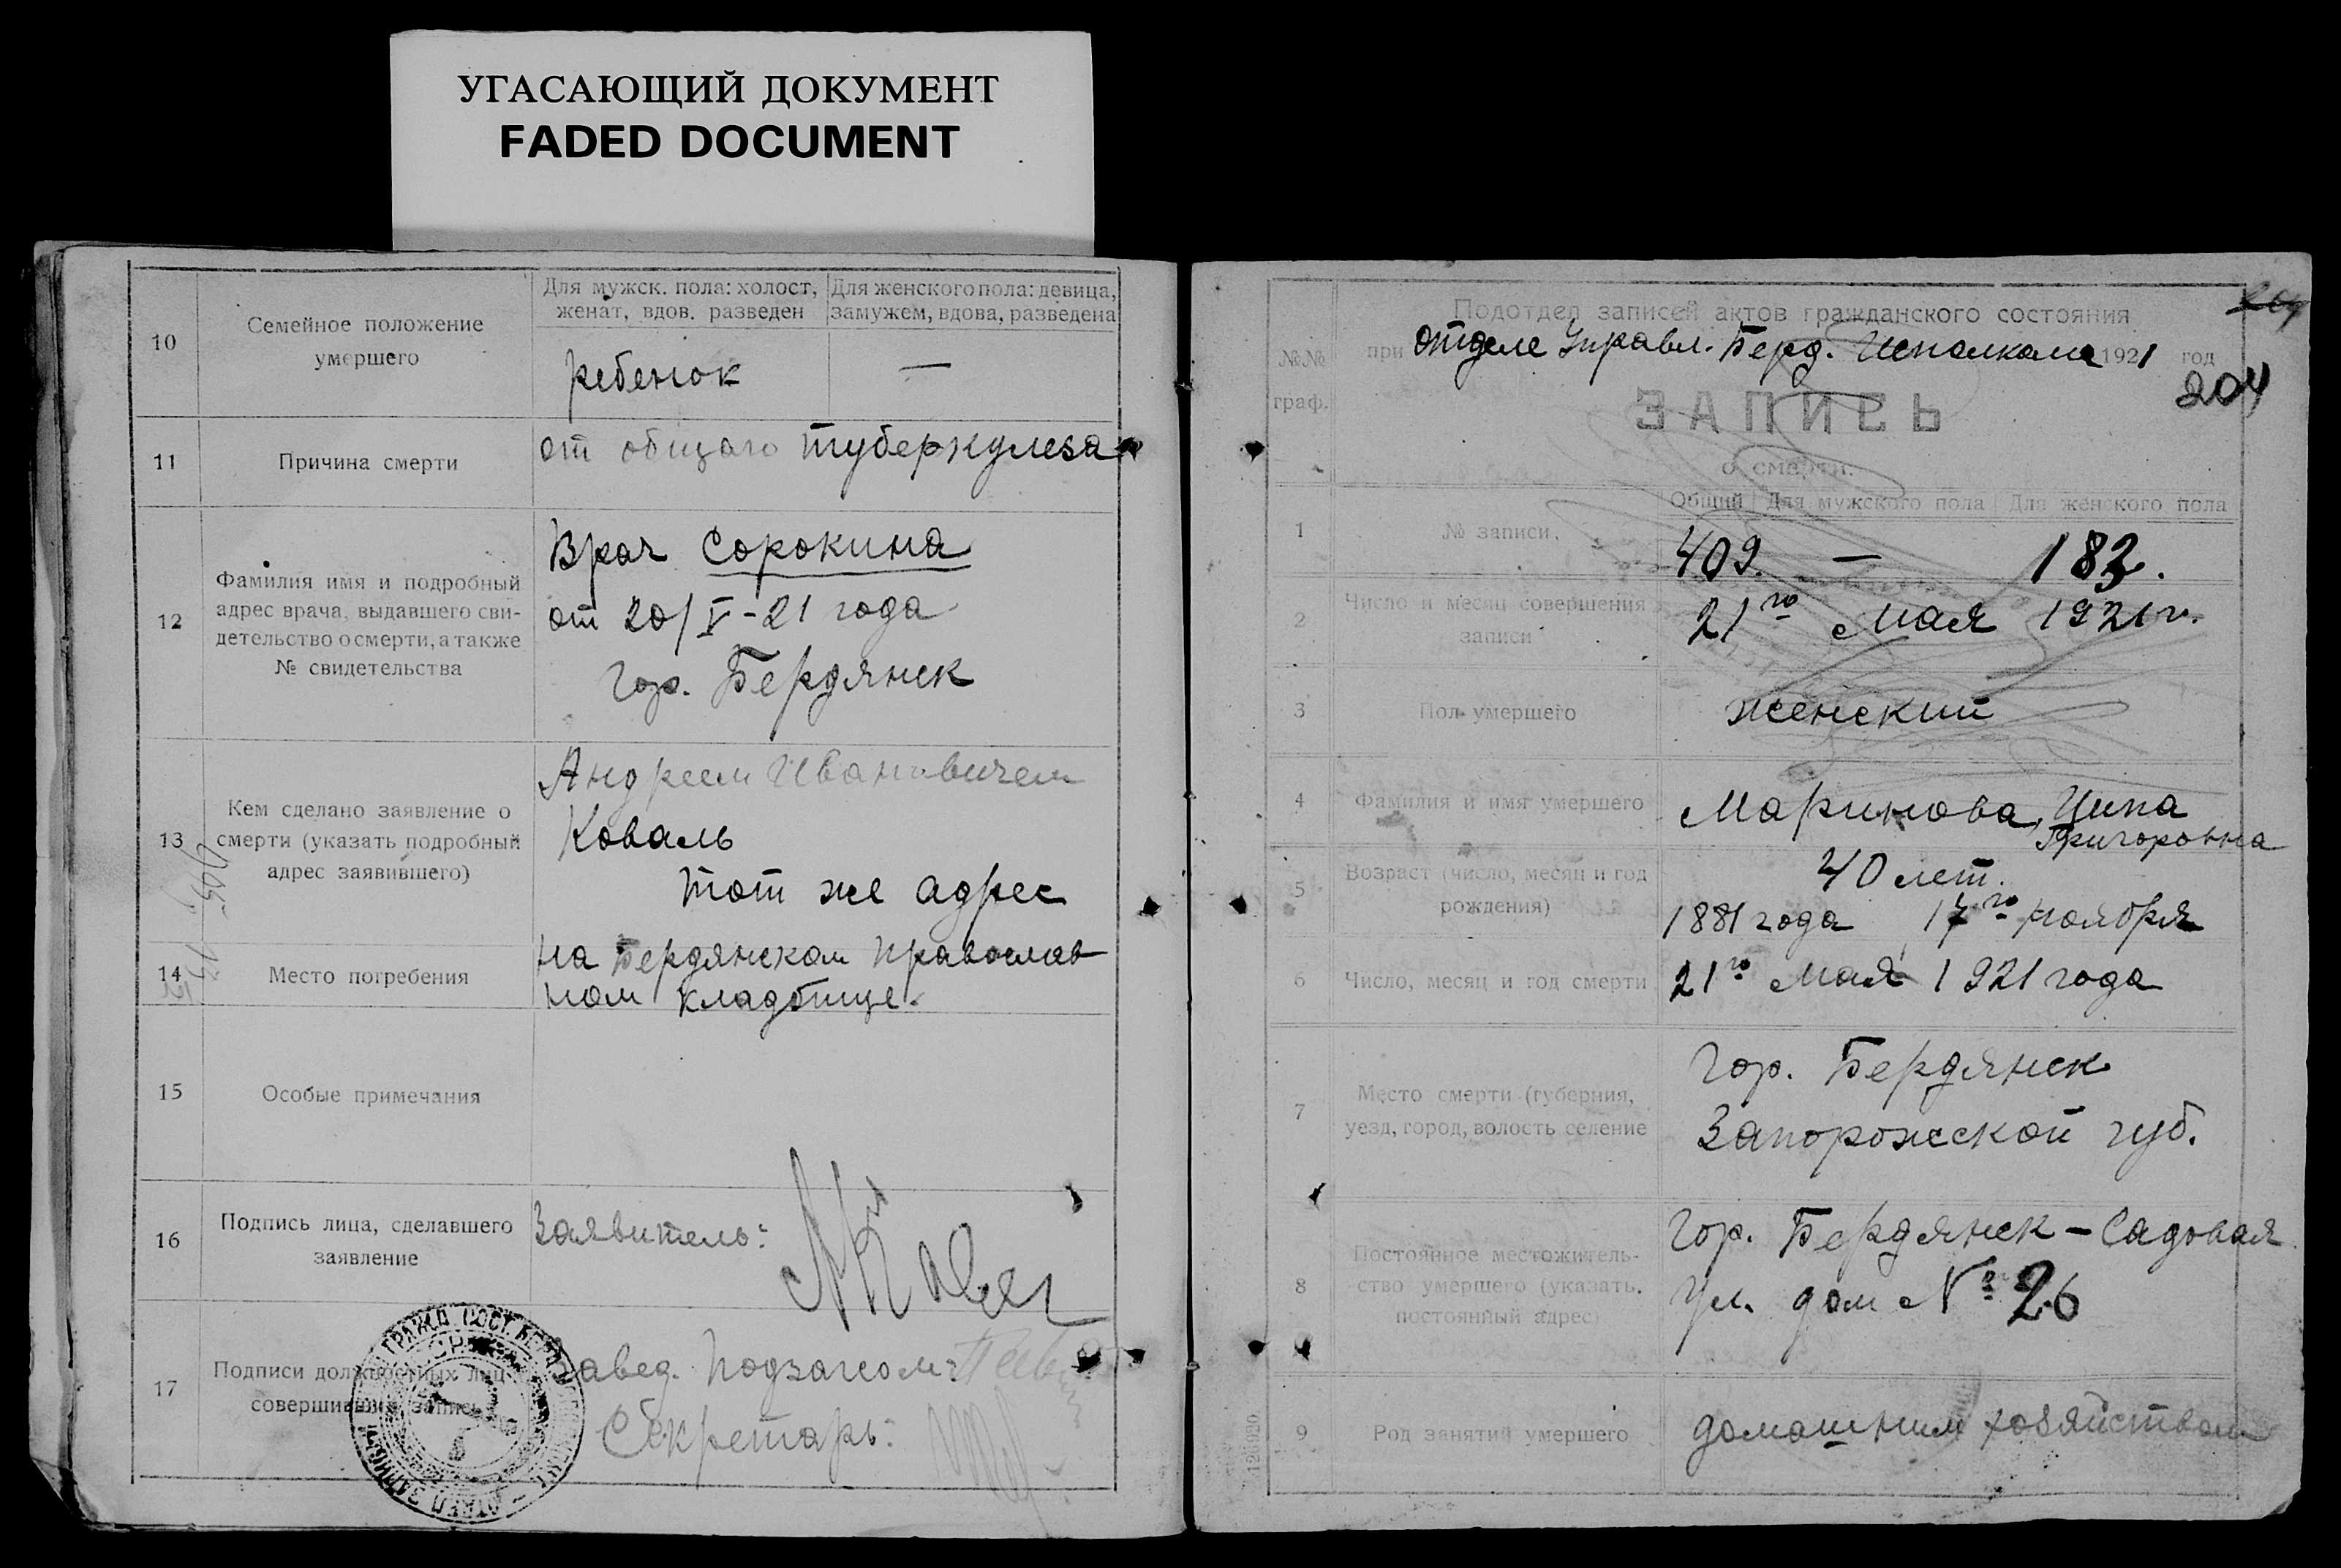 УГАСАЮЩИЙ ДОКУМЕНТ
FADED DOCUMENT
10
Семейное положение
умершего
Для мужск. пола: холост,
женат, вдов. разведен
Для женского пола: девица,
замужем, вдова, разведена
ребенок
—
11
Причина смерти
от общаго туберкулеза
12
Фамилия имя и подробный
адрес врача, выдавшего сви-
детельство о смерти, а также
№ свидетельства
Врач Сорокина
от 20/V-21 года
Гор. Бердянск
13
Кем сделано заявление о
смерти (указать подробный
адрес заявившего)
Андреем Ивановичем
Коваль
тот же адрес
14
Место погребения
на Бердянском православ
ном кладбище.
15
Особые примечания
16
Подпись лица, сделавшего
заявление
Заявитель:
17
Подписи должностных лиц
совершивших запись
Завед. Подзагсом:
Секретарь:
Подотдел записей актов гражданского состояния
№№
граф.
при отделе Управл. Берд. Исполкома 1921 год
204
ЗАПИСЬ
о смерти.
Общий
Для мужского пола
Для женского пола
1
№ записи.
409. — 183.
2
Число и месяц совершения
записи
21го Мая 1921 г.
3
Пол умершего
женский
4
Фамилия и имя умершего
Маринова, Ципа
Григоровна
5
Возраст (число, месяц и год
рождения)
40 лет.
1881 года 17го ноября
6
Число, месяц и год смерти
21го Мая 1921 года
7
Место смерти (губерния,
уезд, город, волость селение
Гор. Бердянск
Запорожской губ.
8
Постоянное местожитель-
ство умершего (указать.
постоянный адрес)
Гор. Бердянск – Садовая
ул. дом № 26
9
Род занятий умершего
домашним хозяйством